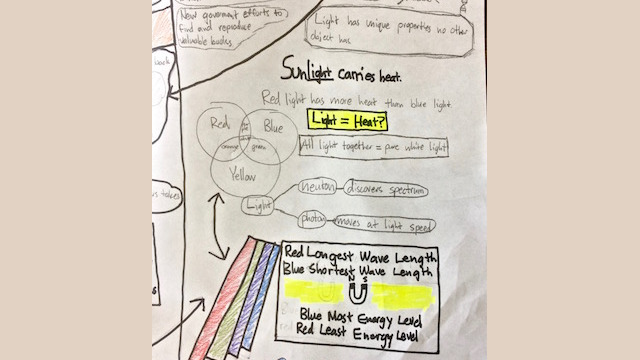 New goverment efforts to
find and reproduce
valuable books
Light has unique properties no other
object has
back
Sunlight carries heat.
Red light has more heat than blue light
Light = Heat?
All light together = pure white light
Red
Blue
orange
green
Yellow
Light
neuton
discovers spectrum
photon
moves at light speed
Red Longest Wave Length
Blue Shortest Wave Length
N S
Blue Most Energy Level
Red Least Energy Level